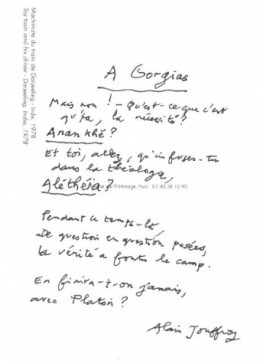 Machiniste du train de Darjeeling - Inde, 1978
Toy train and his driver - Darjeeling, India, 1978
A Gorgias
Mais non ! - Qu'est-ce que c'est
que ça, la nécessité ?
Anankhé ?
Et toi, allez, qu'infuses-tu
dans la théologie,
Alèthéia ?
Printmage, Paris
Pendant ce temps-là
De question en question posées,
la vérité a foutu le camp.
En finira-t-on jamais,
avec Platon ?
Alain Jouffroy